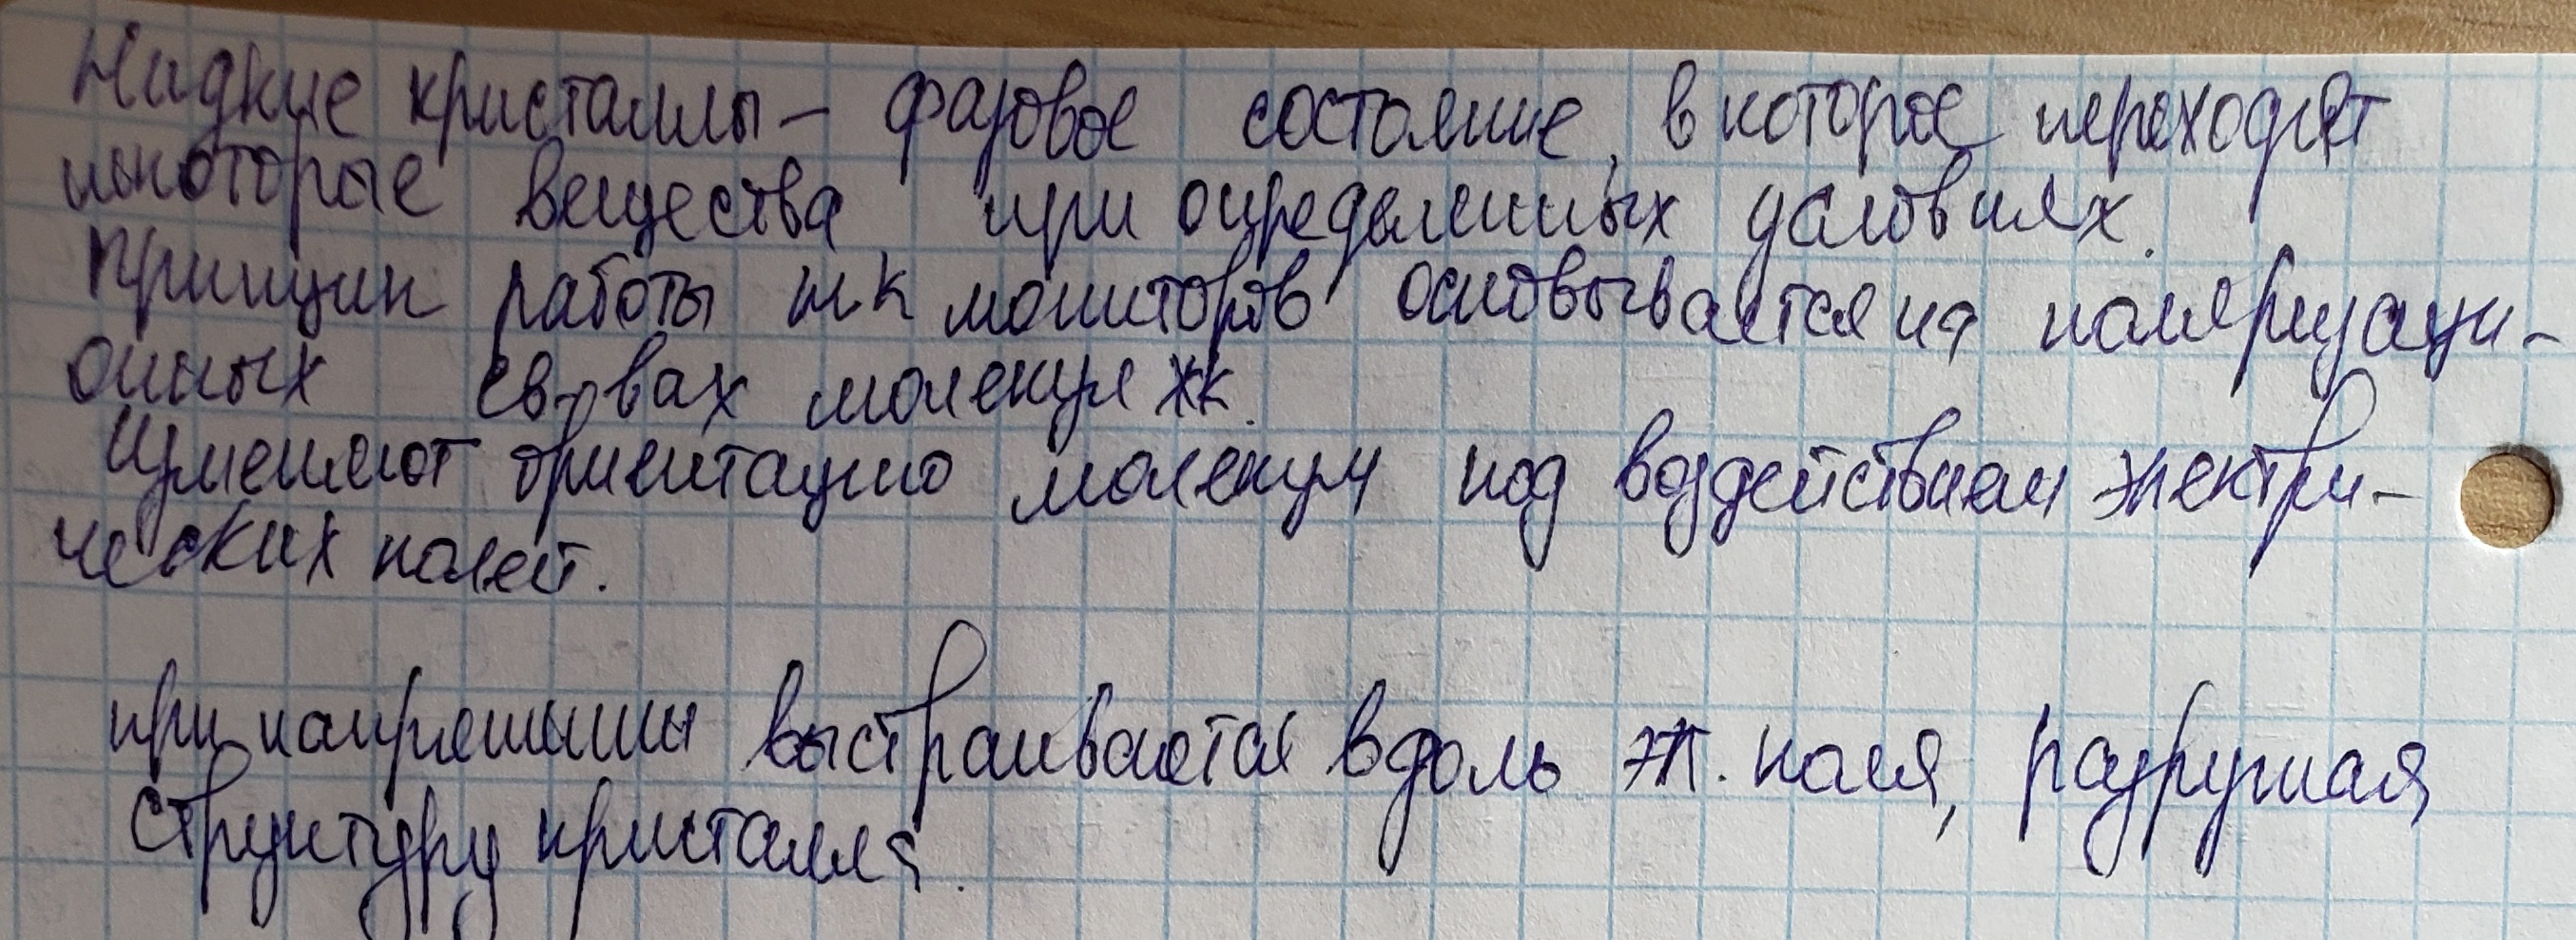 Жидкие кристаллы – фазовое состояние, в которое переходят
некоторые вещества при определенных условиях.
Принцип работы жк мониторов основывается на поляризаци-
онных св-вах молекул жк.
Изменяют ориентацию молекул под воздействием электри-
ческих полей.
при напряжении выстраивается вдоль эл. поля, разрушая
структуру кристалла.